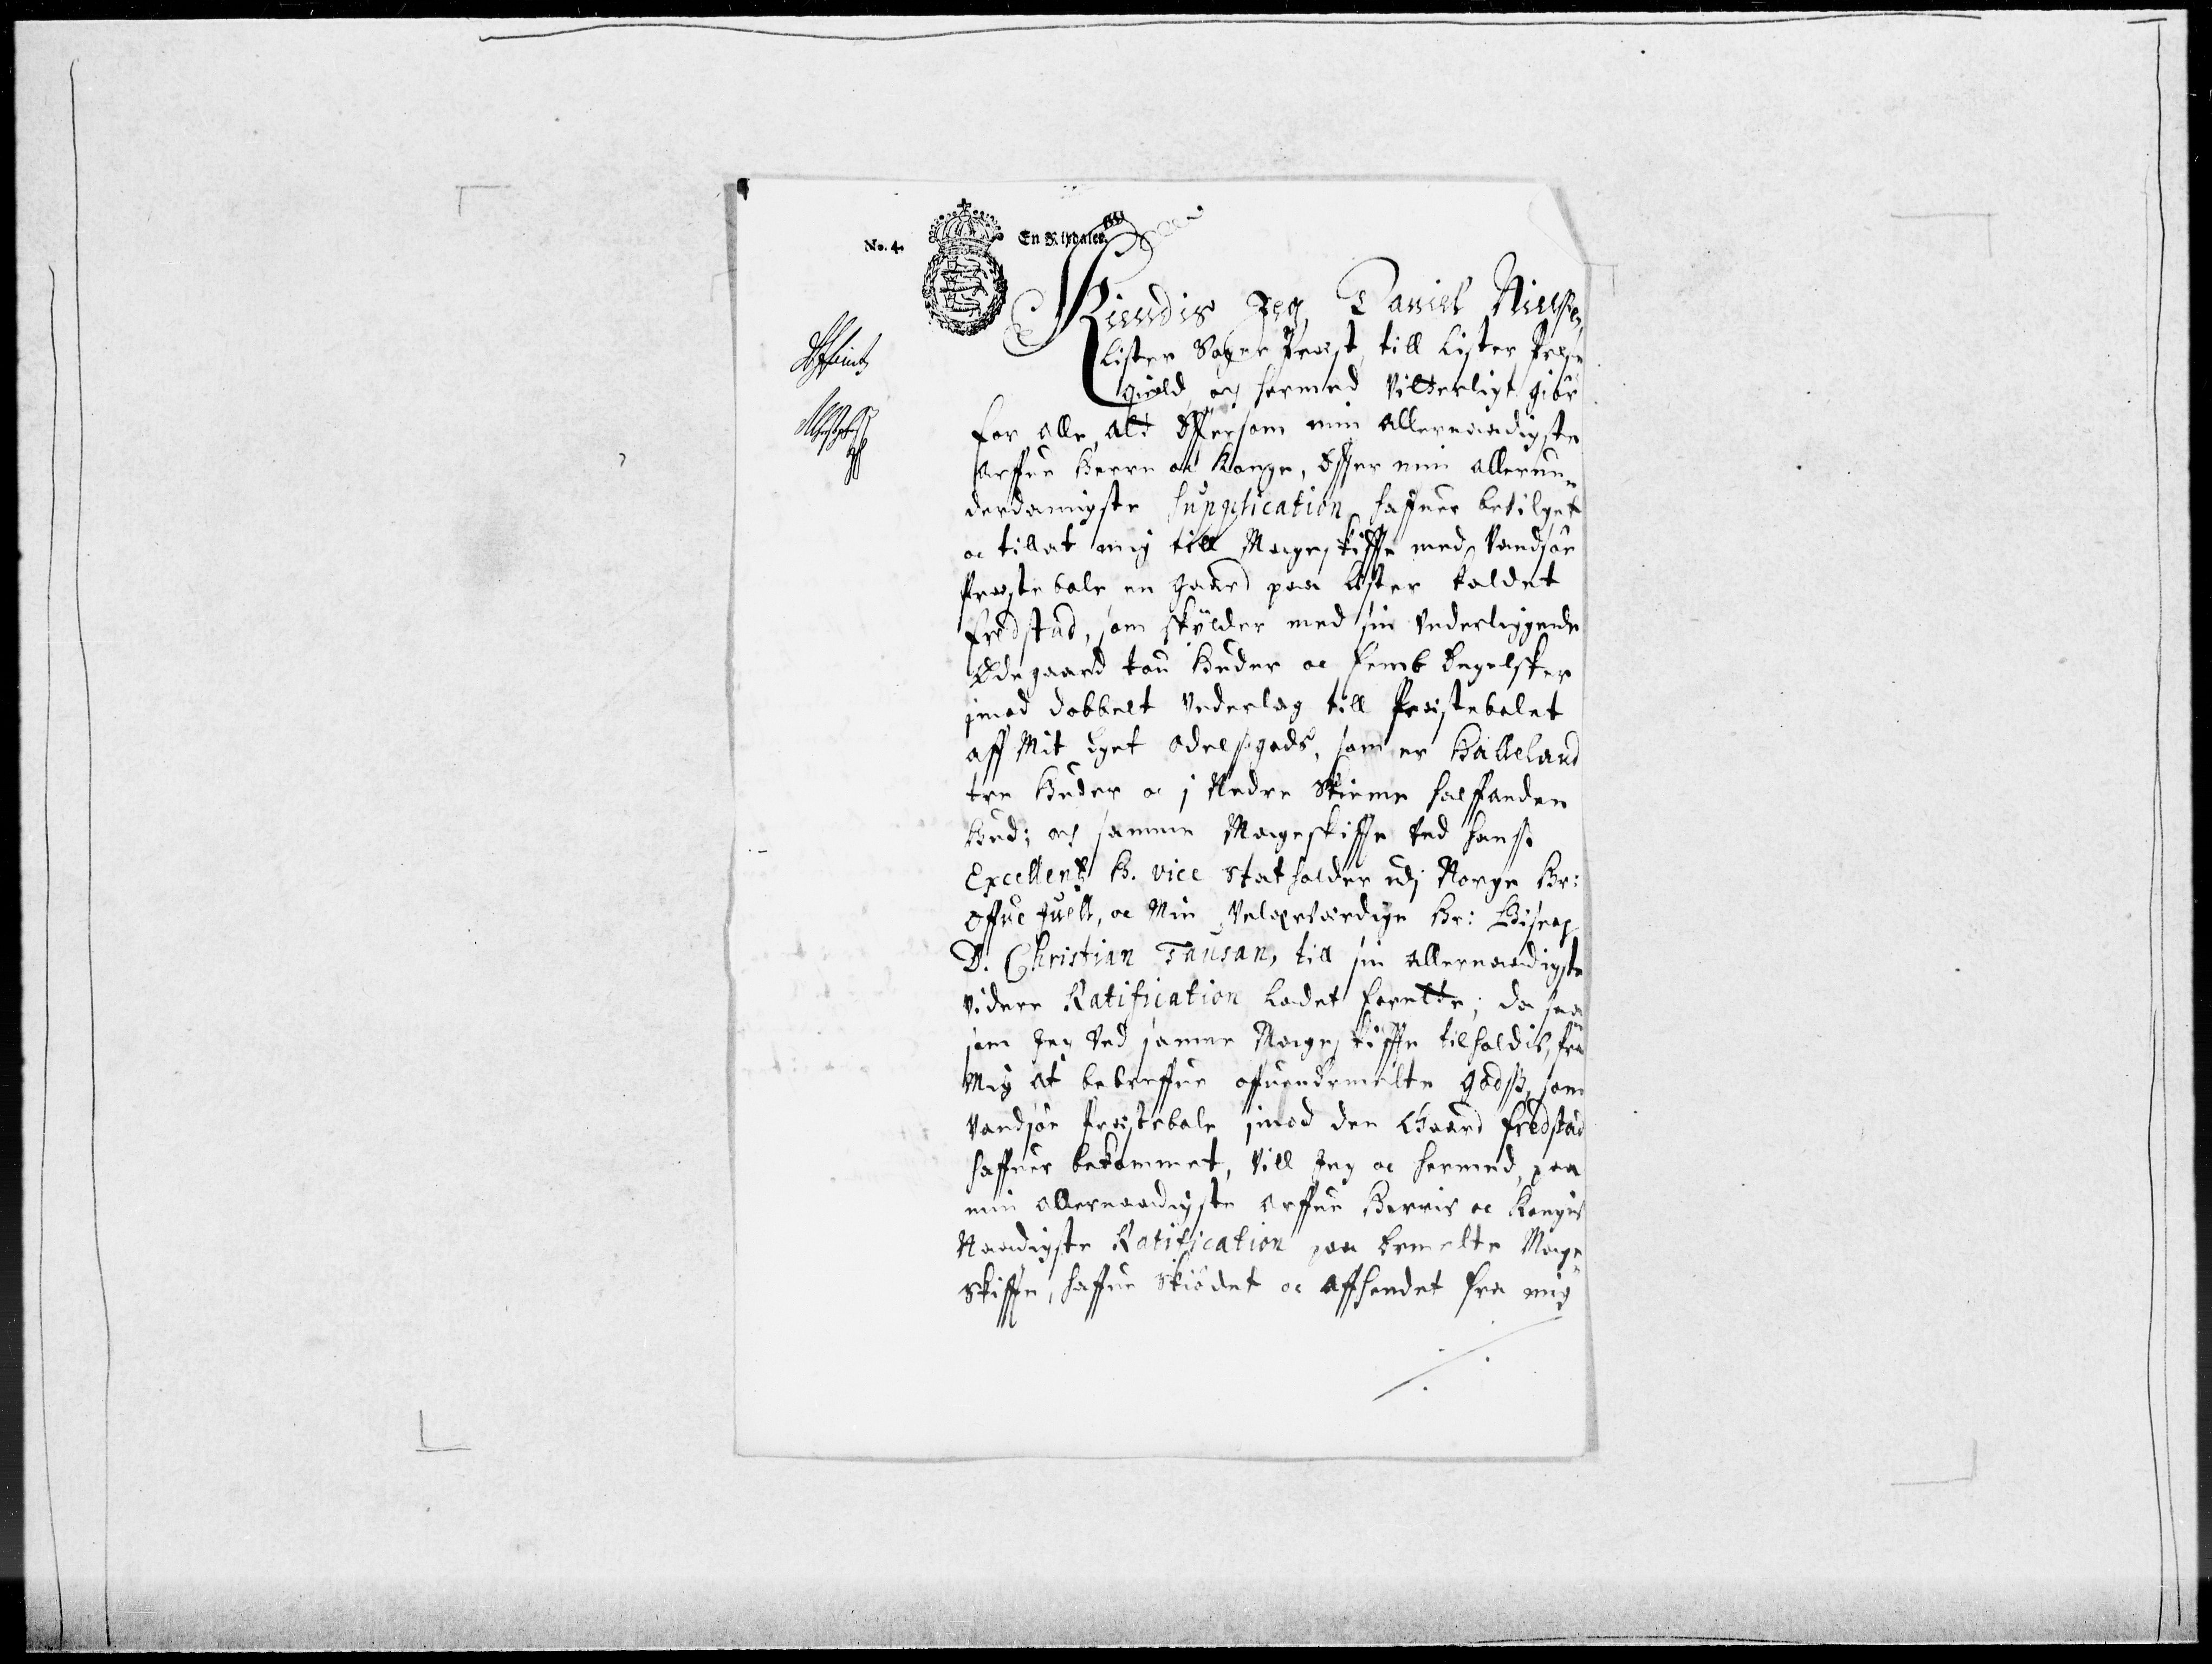 No. 4. En Rixdaler
Kiendis Jeg Daniel Nielsen
Lister Sogne Præst till Lister Præste
gield, og hermed Vitterligt giør
for alle, alt Efftersom min allernaadigste
Arffue Herre oc Konge, Effter min allerun-
derdanigste Supplication haffuer bevilget
oc tillat mig till Mageskiffte med Vandsøe
Præstebole en gaard paa Lister kaldet
Fredstad, som skylder med sin underliggende
Ødegaard tou Huder oc femb Engelsker
imod dobbelt Vederlag till Præstebolet
aff Mit Eget Odelsgods, som er Hålleland
tre Huder oc i Nedre Skieme halffanden
Hud; og samme Mageskiffte ved hanss
Excellentz H. Vice Statholder udj Norge Hr:
Offue Juell, oc Min Velærværdige Hr: Bisp
D. Christian Tausan, till sin allernaadigste
videre Ratification ladet forette; da saa
som Jeg ved samme Mageskiffte tilholdis, fra
Mig at bebreffue offuenbemelte godss, som
Vandsøe Præstebole imod den Gaard Fredstad
haffuer bekommet, Vill Jeg oc hermed, paa
min allernaadigste Arffue Herris oc Kongis
Naadigste Ratification paa bemelte Mage
Skiffte, haffue Skiødet oc Affhendet fra mig